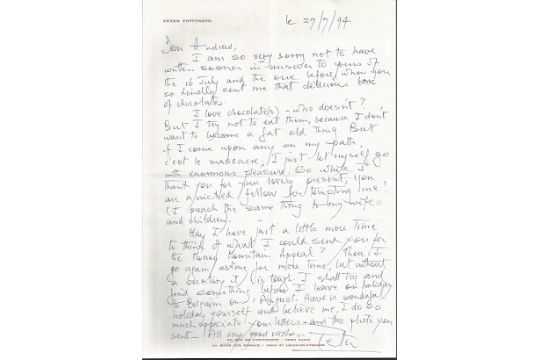 PETER TOWNSEND
le 27/7/94
Dear Andrew,
I am so very sorry not to have
written sooner in answer to yours of
the 16 July and the one before, when you
so kindly sent me that delicious box
of chocolates.
I love chocolate(s) – who doesn't?
But I try not to eat them, because I don't
want to become a fat old thing. But
if I come upon any on my path,
c'est le massacre; I just let myself go
with enormous pleasure. So while I
thank you for your lovely present, you
are a wicked fellow for tempting me!
(I preach the same thing to my wife
and children.
May I have just a little more time
to think of what I could send you for
the Money Mountain Appeal? There I
go again, asking for more time, but without
a secretary it is tough. I shall try and
find something before I leave on holiday
to Belgium on 1 August. Have a wonderful
holiday yourself and believe me, I do so
much appreciate your letters – and the photo you
sent – All my good wishes.
Peter